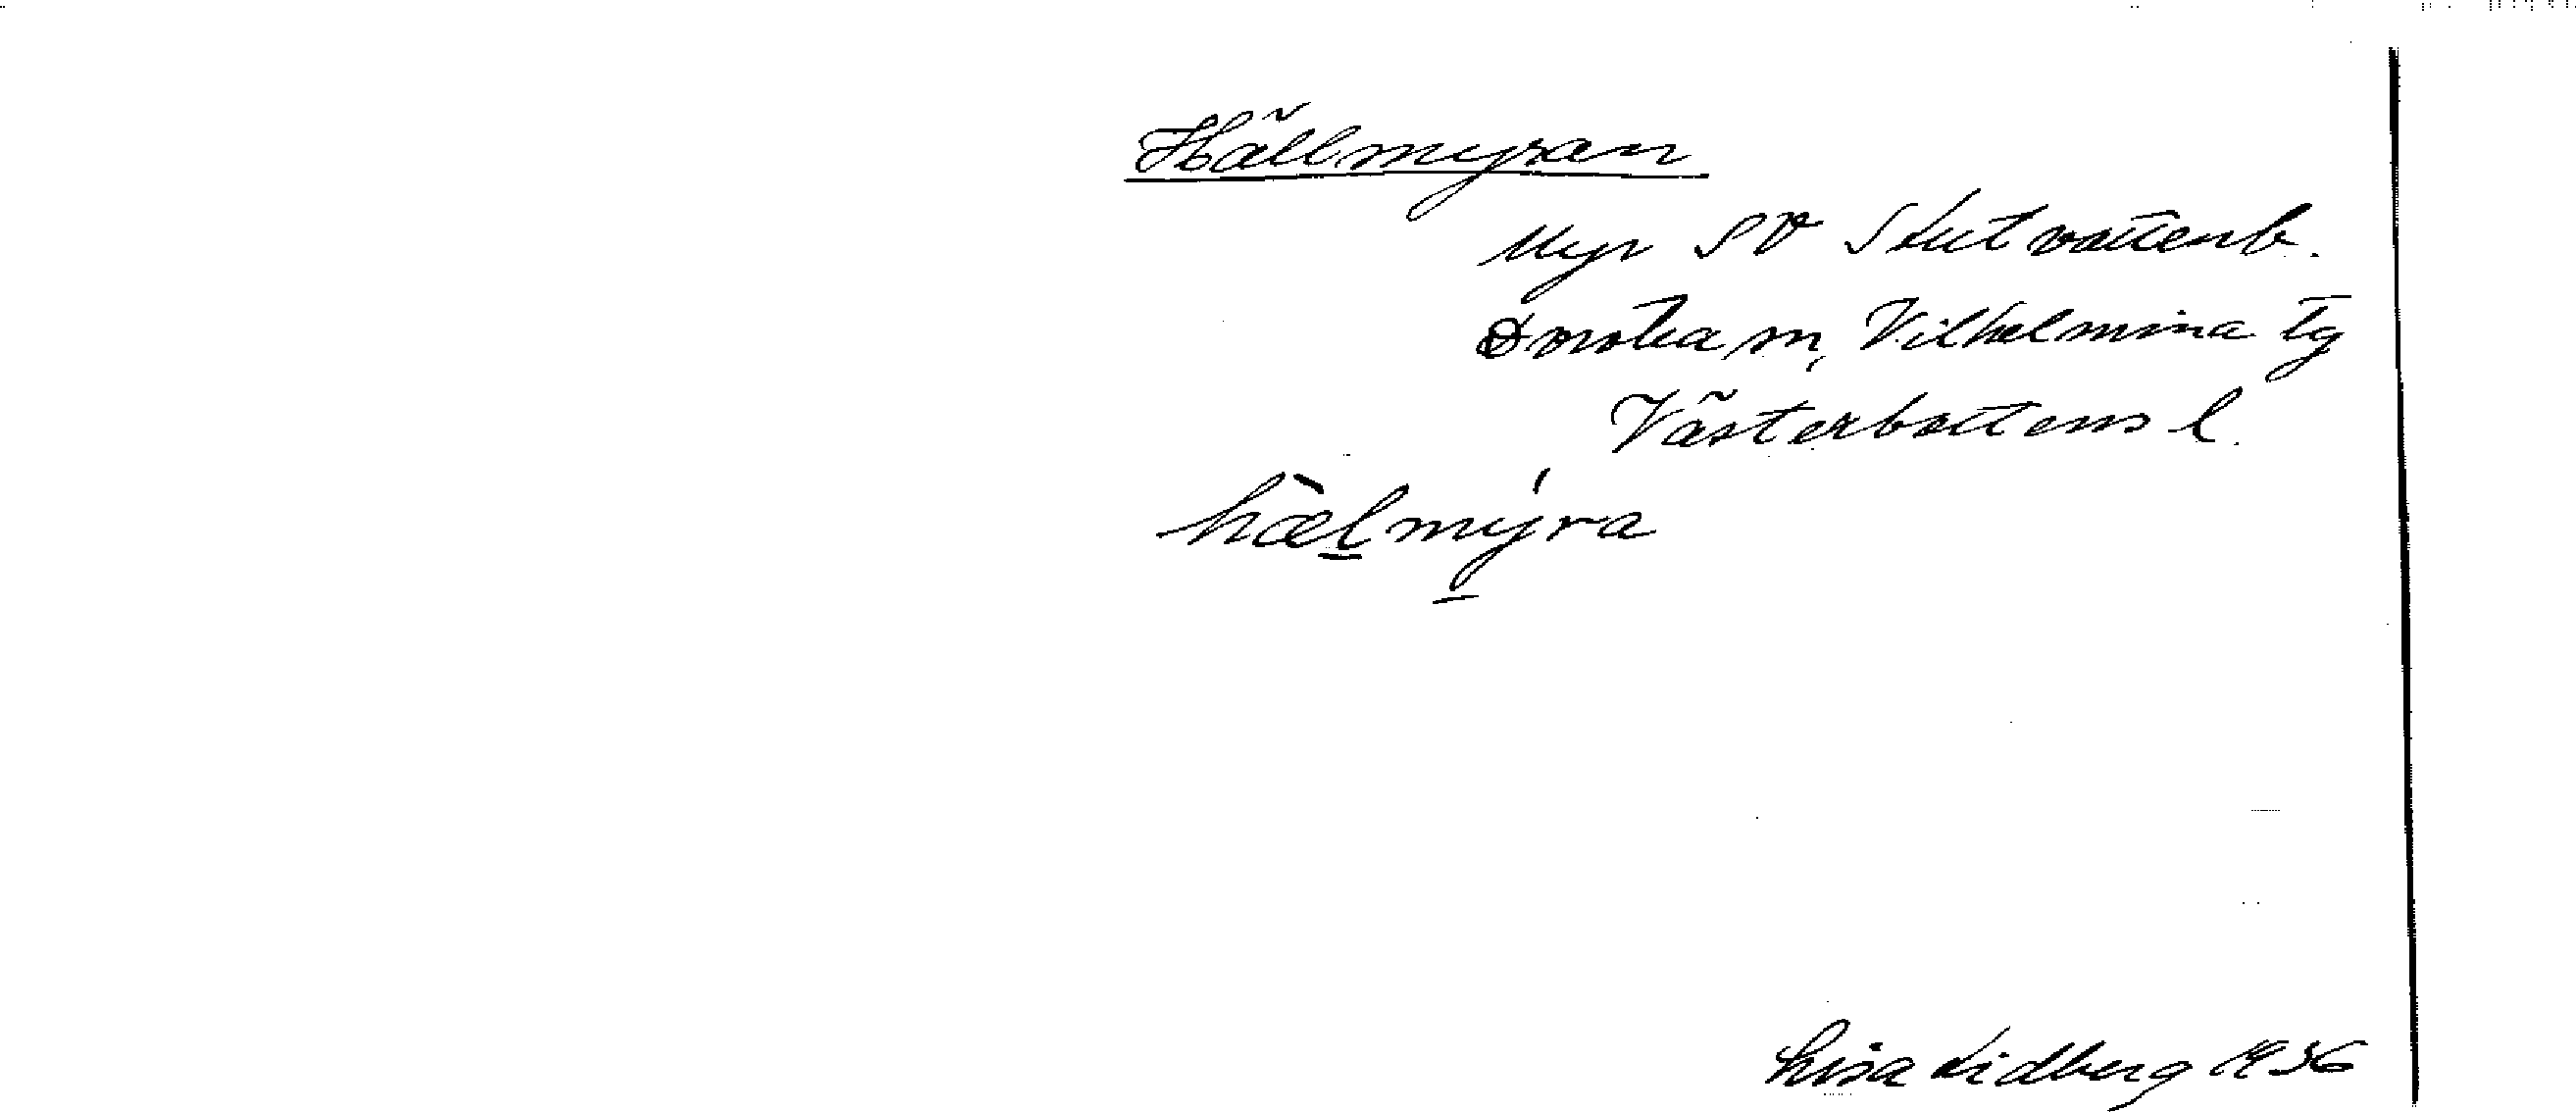 Hällmyran
Myr SV Stutvattenb.
Dorotea sn, Vilhelmina tg
Västerbottens l.
hæ̀l̲mý̲ra
Lisa Lidberg 1936